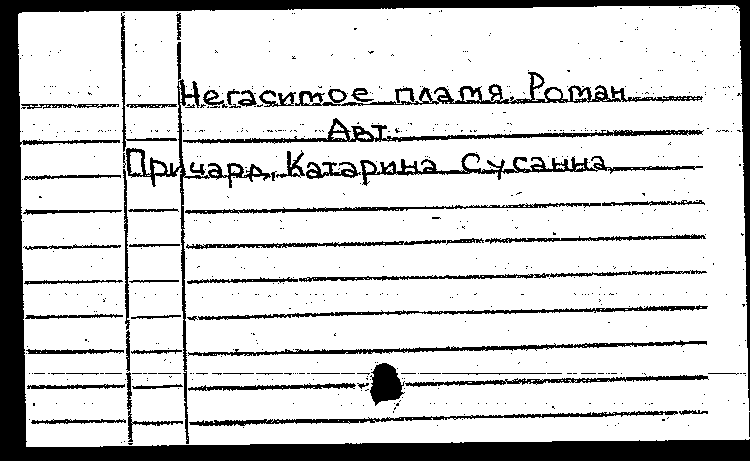 Негаситое пламя. Роман
Авт.:
Причард, Катарина Сусанна